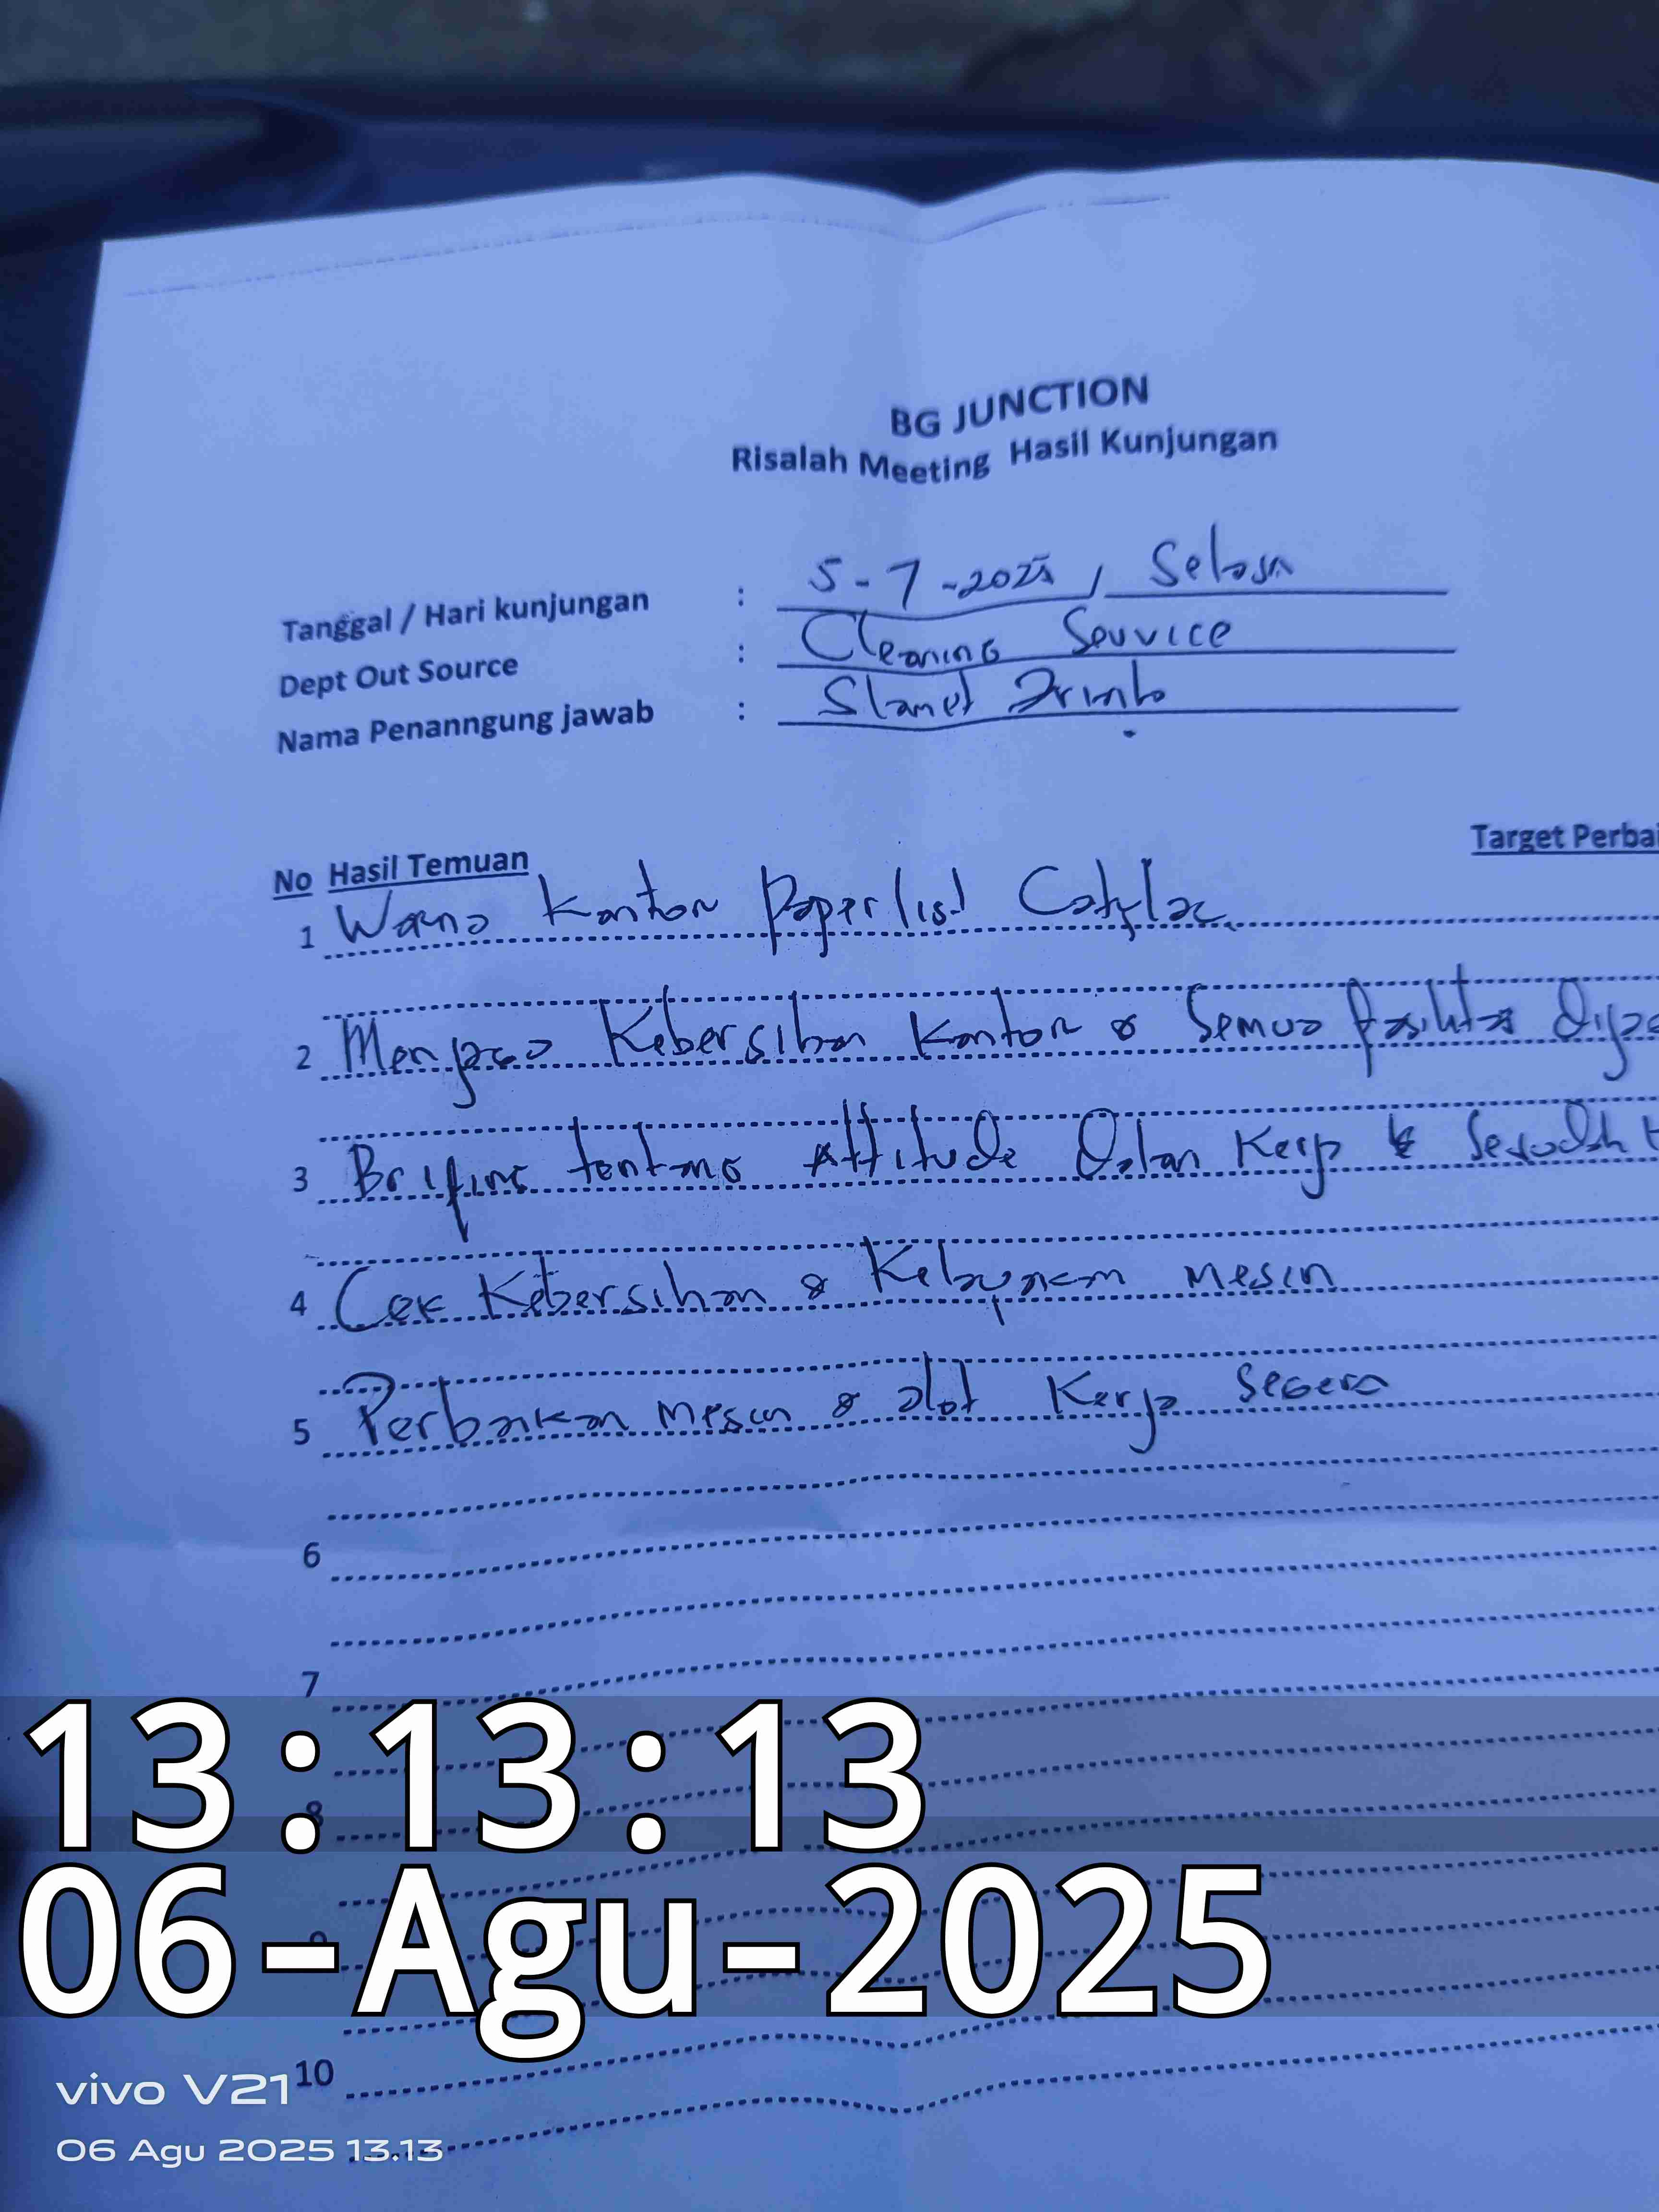 BG JUNCTION
Risalah Meeting Hasil Kunjungan
Tanggal / Hari kunjungan : 5-7-2025, Selasa
Dept Out Source : Cleaning Souvice
Nama Penanngung jawab : Slamet
No Hasil Temuan Target Perbai
1 Warna Kantor Paperlist
2 Menjaga Kebersihan Kantor & Semua fasilitas
3 Brifing tentang Attitude Dalam Kerja & Sesudah
4 Cek Kebersihan & Kelayakan mesin
5 Perbaikan mesin & alat Kerja Segera
6
7
8
9
10
13:13:13
06-Agu-2025
vivo V21
06 Agu 2025 13.13